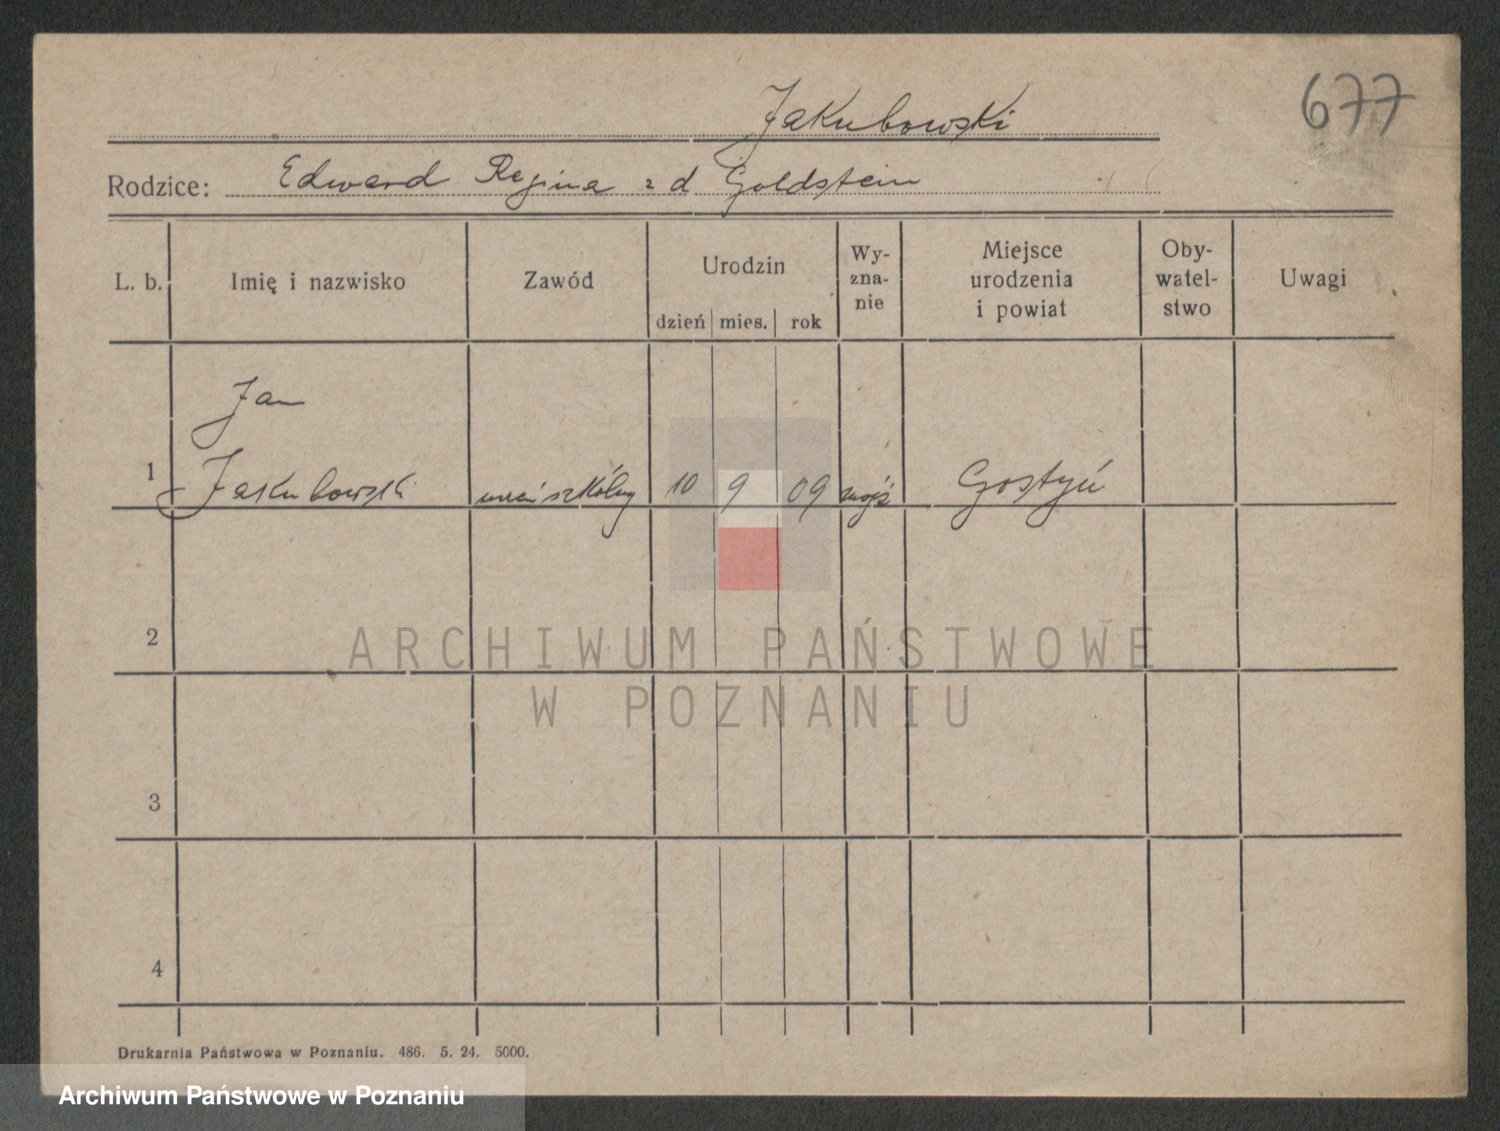 677
Jakubowski
Rodzice: Edward Regina z d Goldstein
L. b.
Imię i nazwisko
Zawód
Urodzin
dzień mies. rok
Wy-
zna-
nie
Miejsce
urodzenia
i powiat
Oby-
watel-
stwo
Uwagi
Jan
1 Jakubowski uczeń szkólny 10 9 09 mojż Gostyń
2
ARCHIWUM PAŃSTWOWE
W POZNANIU
3
4
Drukarnia Państwowa w Poznaniu. 486. 5. 24. 5000.
Archiwum Państwowe w Poznaniu